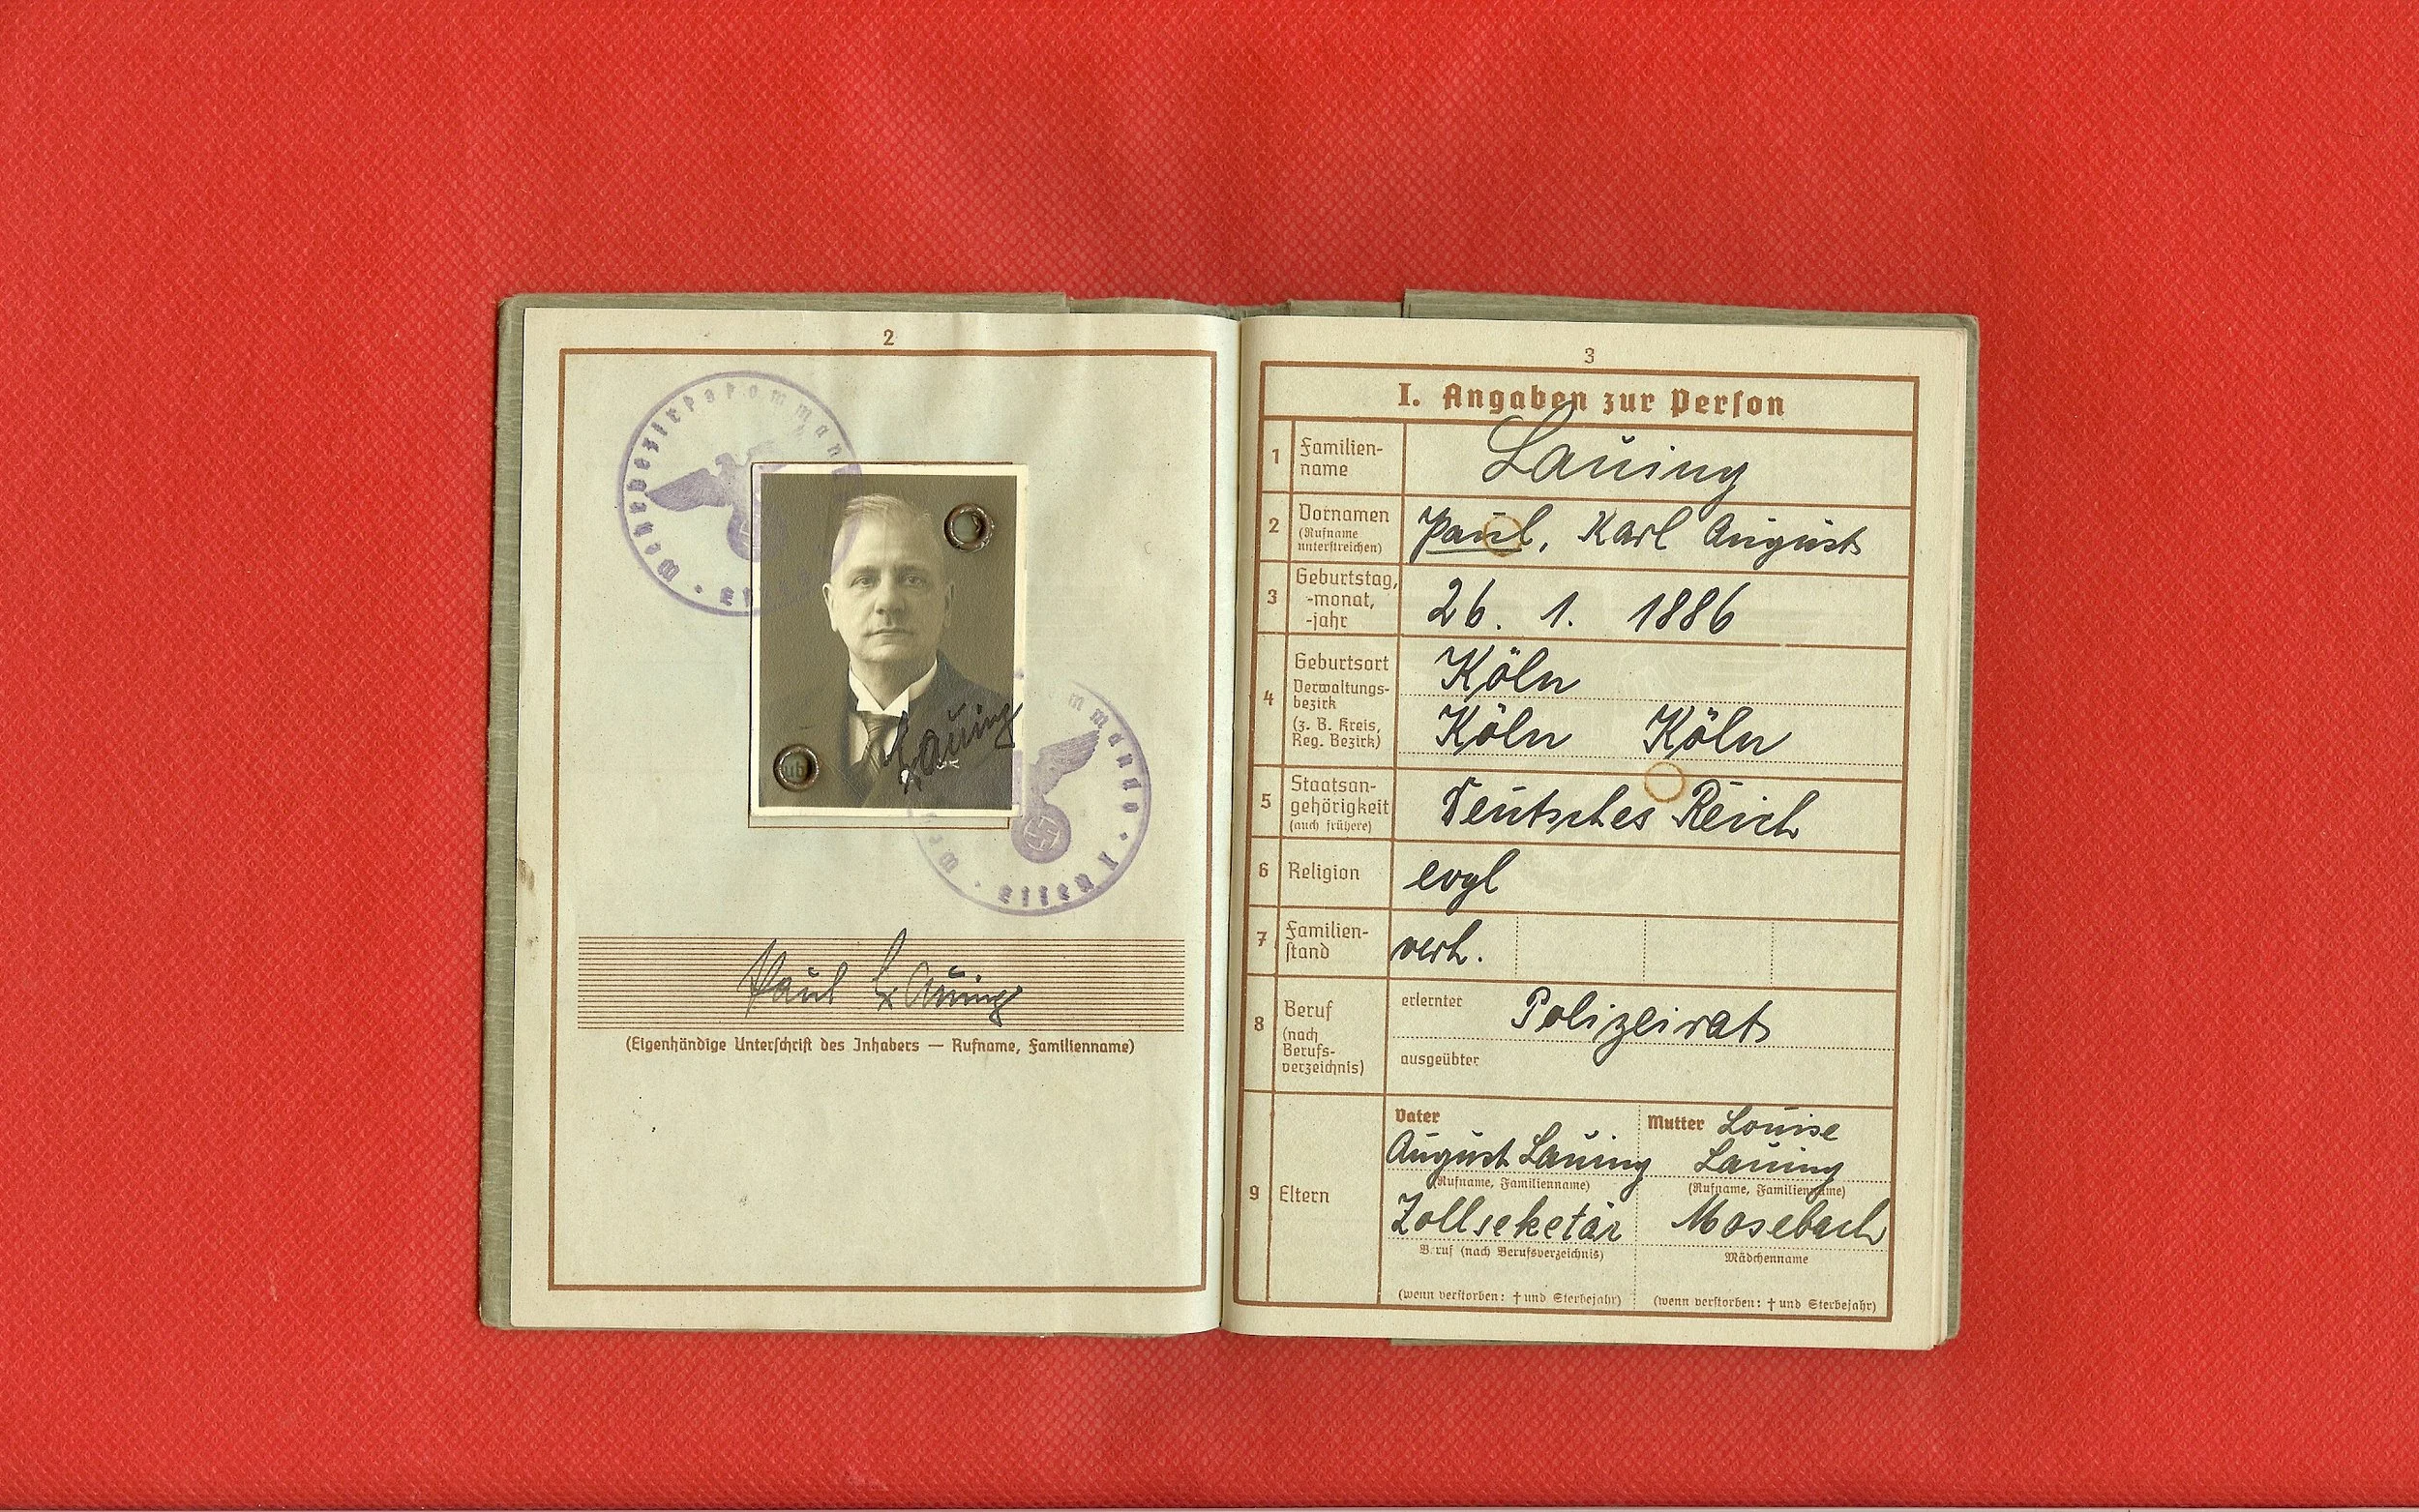 2
Wehrbezirkskommando
Lauing
mmando
Paul Lauing
(Eigenhändige Unterschrift des Inhabers — Rufname, Familienname)
3
I. Angaben zur Person
1 Familien-
name
Lauing
2 Vornamen
(Rufname
unterstreichen)
Paul, Karl August
3 Geburtstag,
-monat,
-jahr
26. 1. 1886
4 Geburtsort
Verwaltungs-
bezirk
(z. B. Kreis,
Reg. Bezirk)
Köln
Köln Köln
5 Staatsan-
gehörigkeit
(auch frühere)
Deutsches Reich
6 Religion
evgl
7 Familien-
stand
verh.
8 Beruf
(nach
Berufs-
verzeichnis)
erlernter Polizeirat
ausgeübter
9 Eltern
Vater
August Lauing
(Rufname, Familienname)
Zollseketär
Beruf (nach Berufsverzeichnis)
(wenn verstorben: † und Sterbejahr)
Mutter Louise
Lauing
(Rufname, Familienname)
Mosebach
Mädchenname
(wenn verstorben: † und Sterbejahr)